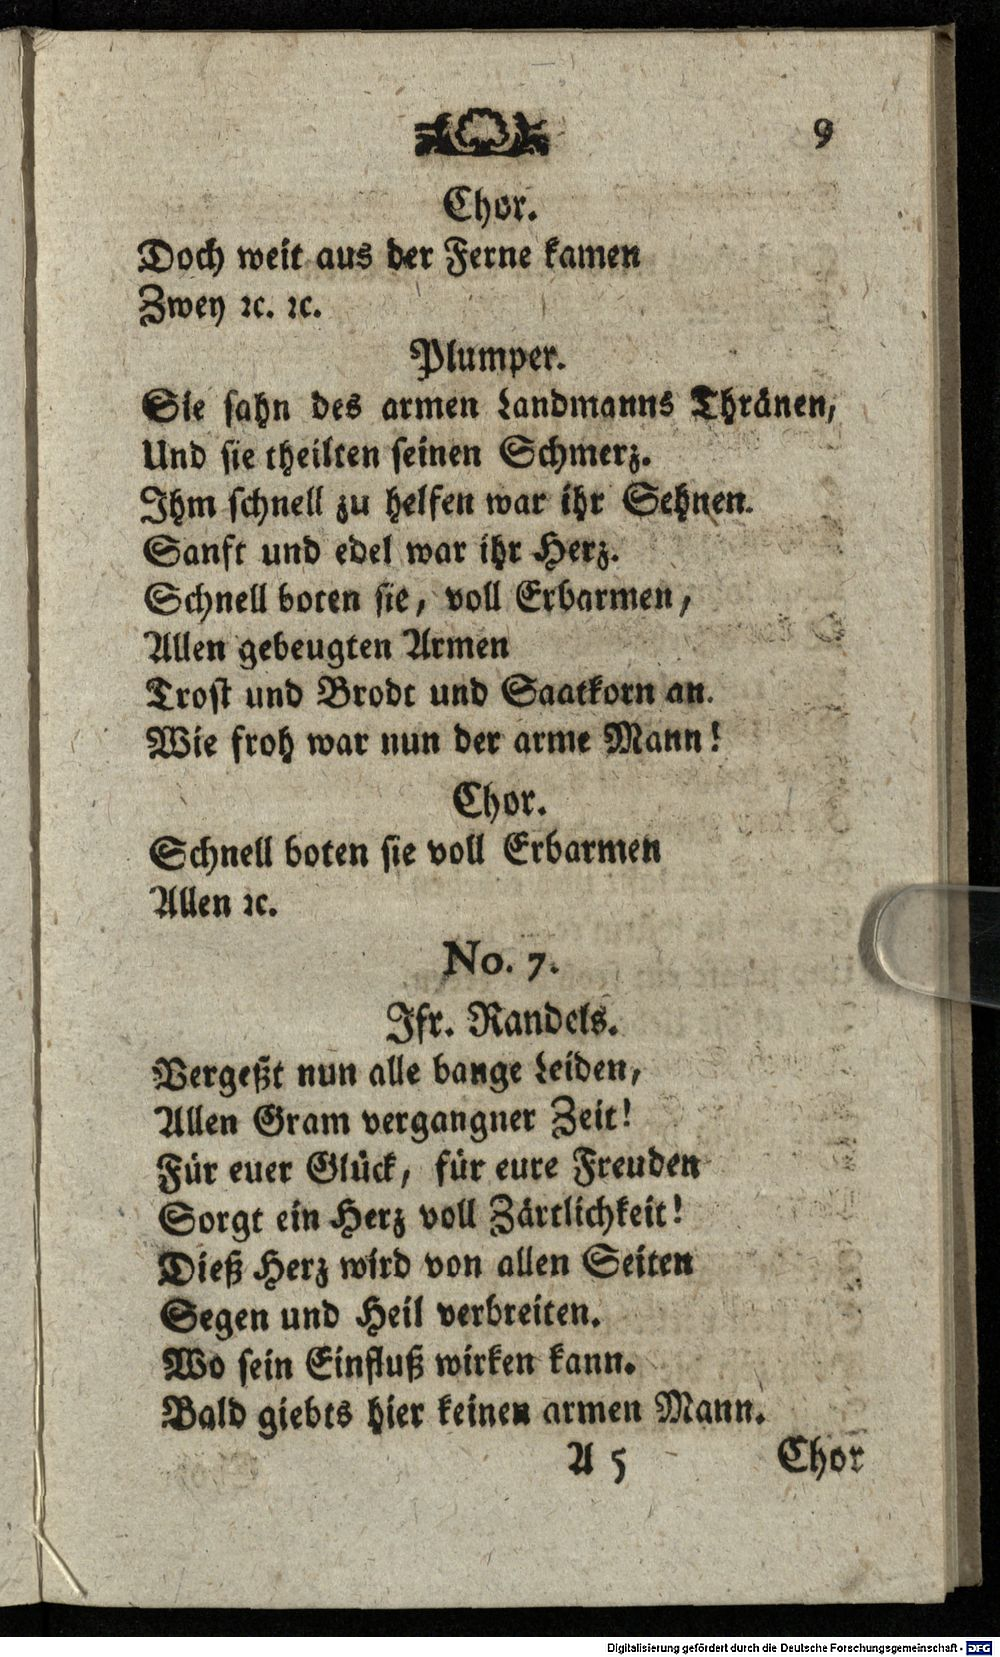 9
Chor.
Doch weit aus der Ferne kamen
Zwey ꝛc. ꝛc.
Plumper.
Sie sahn des armen Landmanns Thränen,
Und sie theilten seinen Schmerz.
Ihm schnell zu helfen war ihr Sehnen.
Sanft und edel war ihr Herz.
Schnell boten sie, voll Erbarmen,
Allen gebeugten Armen
Trost und Brodt und Saatkorn an.
Wie froh war nun der arme Mann!
Chor.
Schnell boten sie voll Erbarmen
Allen ꝛc.
No. 7.
Jfr. Randels.
Vergeßt nun alle bange Leiden,
Allen Gram vergangner Zeit!
Für euer Glück, für eure Freuden
Sorgt ein Herz voll Zärtlichkeit!
Dieß Herz wird von allen Seiten
Segen und Heil verbreiten.
Wo sein Einfluß wirken kann.
Bald giebts hier keinen armen Mann.
A 5 Chor
Digitalisierung gefördert durch die Deutsche Forschungsgemeinschaft - DFG